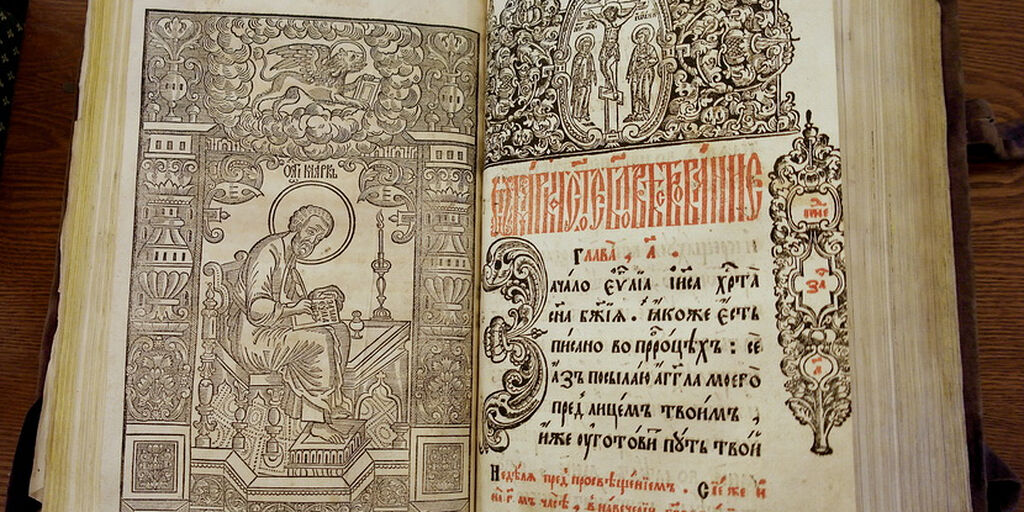 СТ҃Ы МАРКЪ
Ѿ МАРКА СТ҃ОЕ БЛ҃ГОВѢСТВОВАНИЕ
ГЛАВА̀, А҃.
Зачало є҆ѵⷢ҇лїѧ і҆и҃са хрⷭ҇та̀
сн҃а бж҃їѧ . ꙗ҆́коже є҆́сть
писано во прⷪ҇ро́цѣхъ : сѐ
а҆́зъ посыла́ю а҆́гг҃ла моего̀
преⷣ лице́мъ твои́мъ ,
и҆́же ᲂу҆гото́витъ пꙋ́ть тво́й
Недѣ́лѧ преⷣ просвѣще́нїемъ .